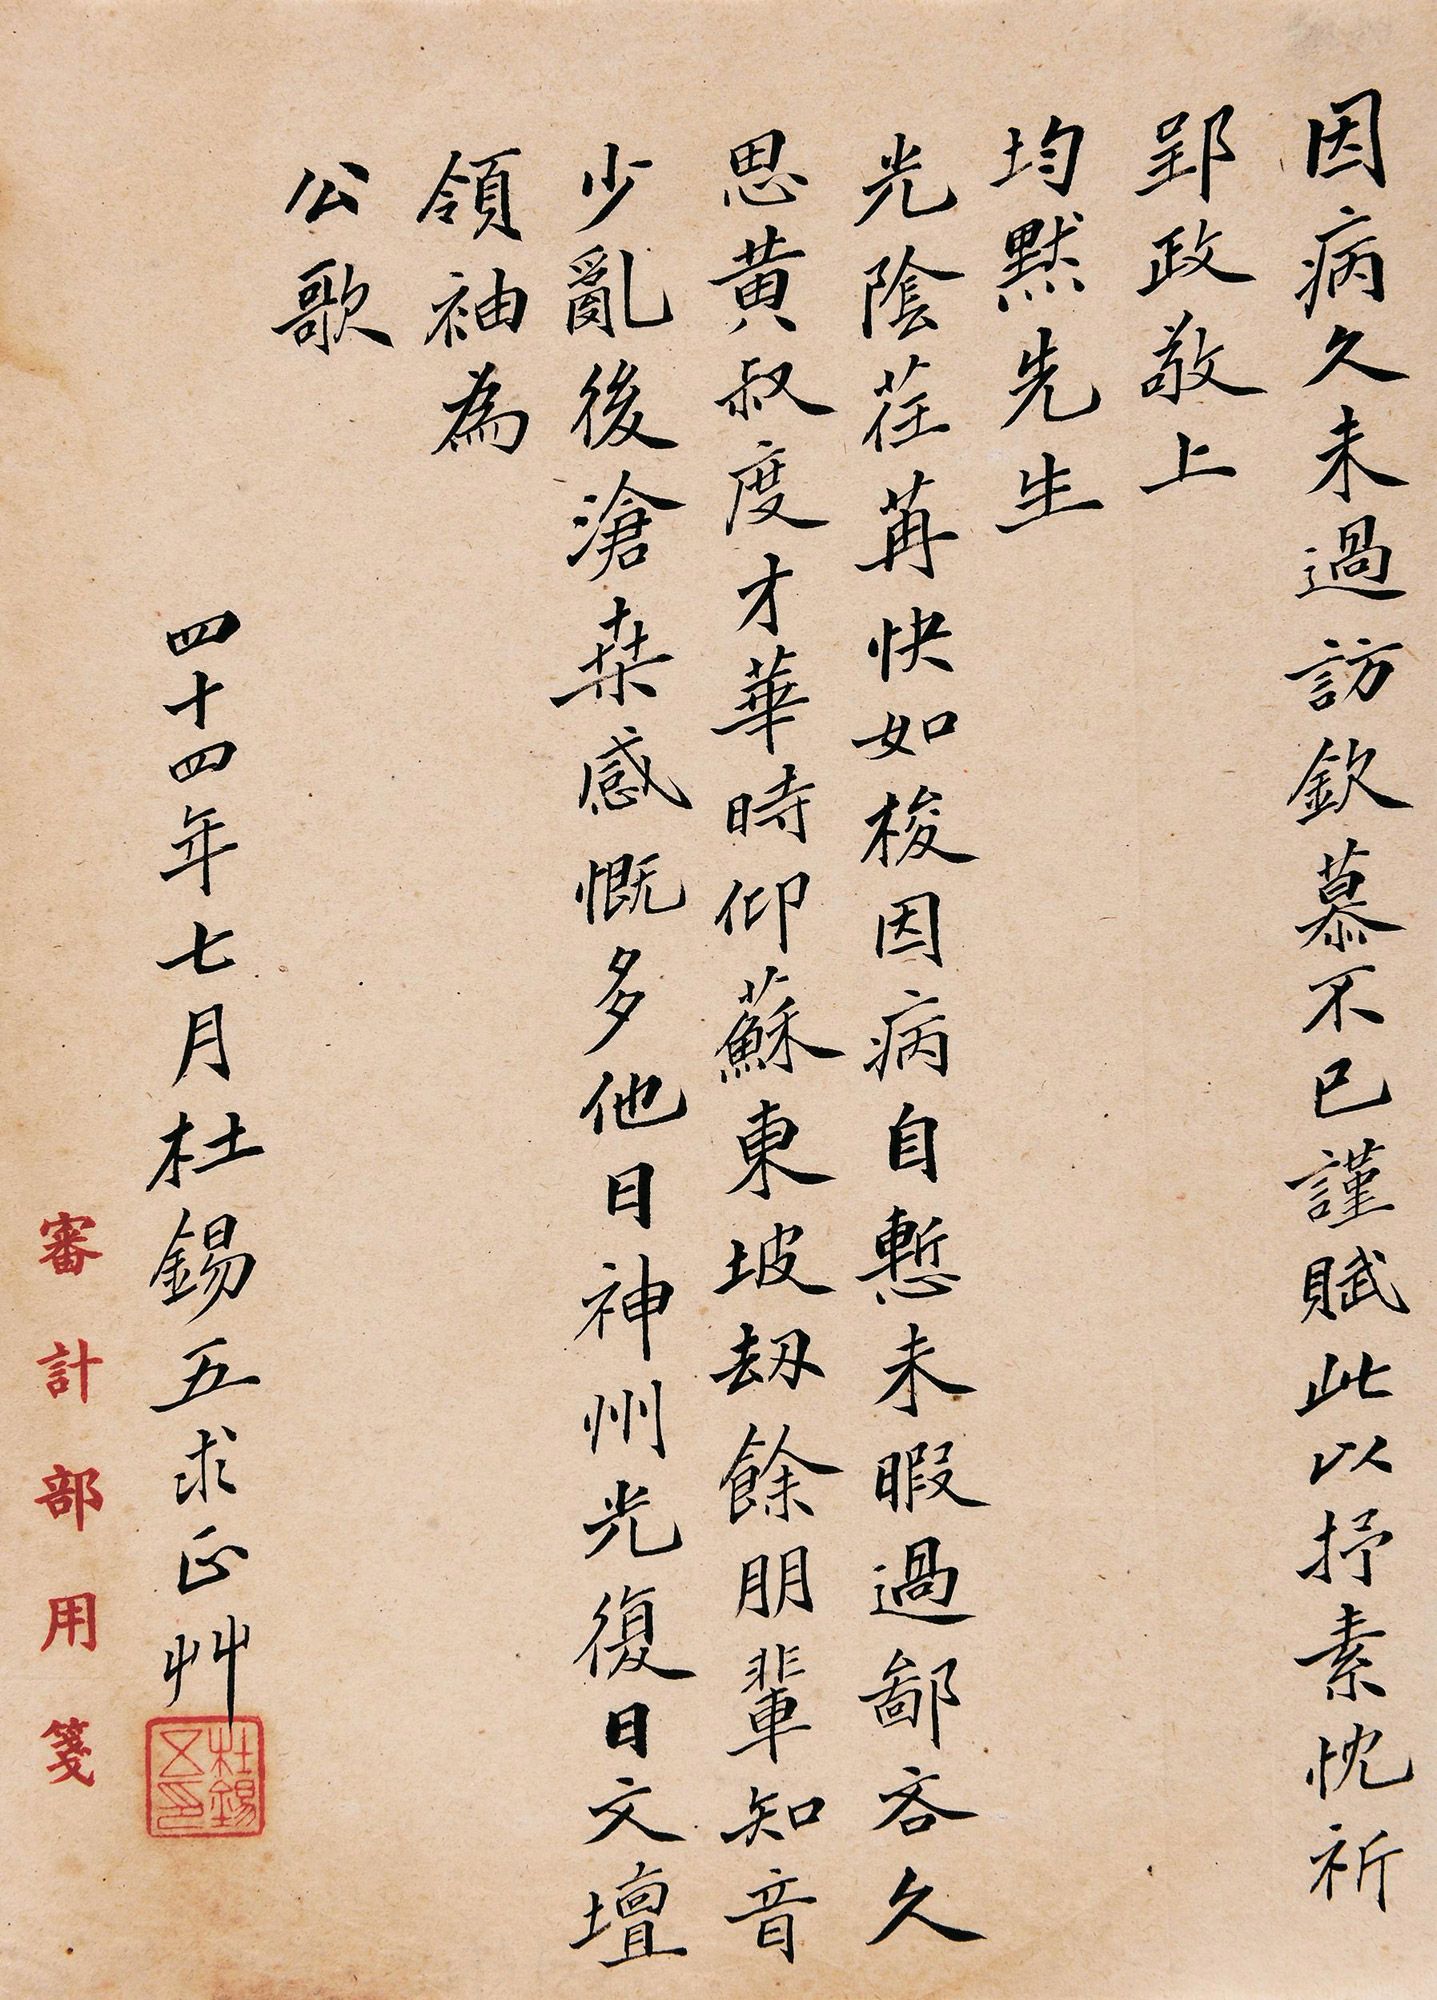 因病久未過訪欽慕不已謹賦此以抒素忱祈
郢政敬上
均默先生
光陰荏苒快如梭因病自慙未暇過鄙吝久
思黄叔度才華時仰蘇東坡刼餘朋輩知音
少亂後滄桒感慨多他日神州光復日文壇
領袖為
公歌
四十四年七月杜錫五求正艸
杜錫五印
審計部用箋